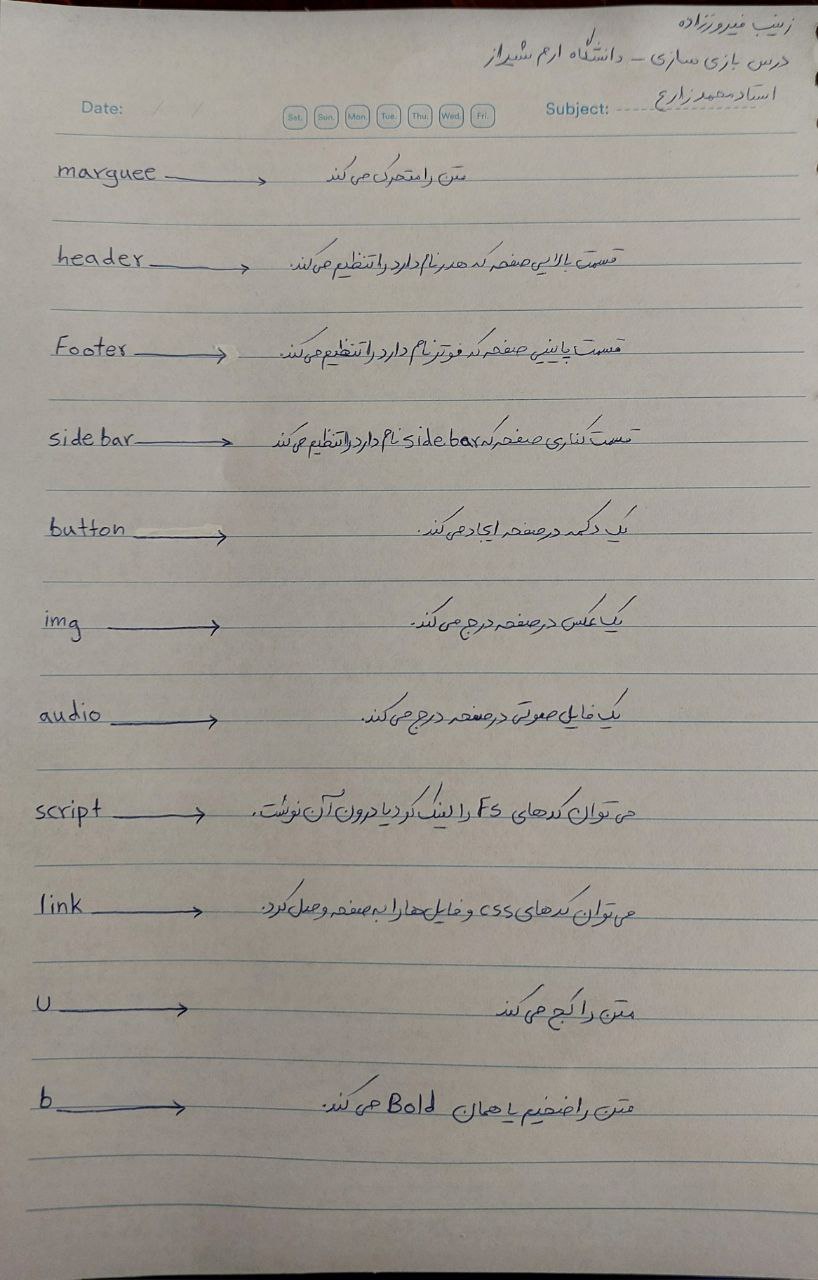 زینب فیروززاده
درس بازی سازی - دانشگاه ارم شیراز
استاد محمد زارع
Date: / / Sat. Sun. Mon. Tue. Thu. Wed. Fri. Subject:
marguee → متن را متحرک می کند
header → قسمت بالایی صفحه که هدر نام دارد را تنظیم می کند.
Footer → قسمت پایینی صفحه که فوتر نام دارد را تنظیم می کند.
side bar → قسمت کناری صفحه که side bar نام دارد را تنظیم می کند
button → یک دکمه در صفحه ایجاد می کند.
img → یک عکس در صفحه درج می کند.
audio → یک فایل صوتی در صفحه درج می کند.
script → می توان کدهای Fs را لینک کرد یا درون آن نوشت.
link → می توان کدهای css و فایل ها را به صفحه وصل کرد.
U → متن را کج می کند
b → متن را ضخیم یا همان Bold می کند.